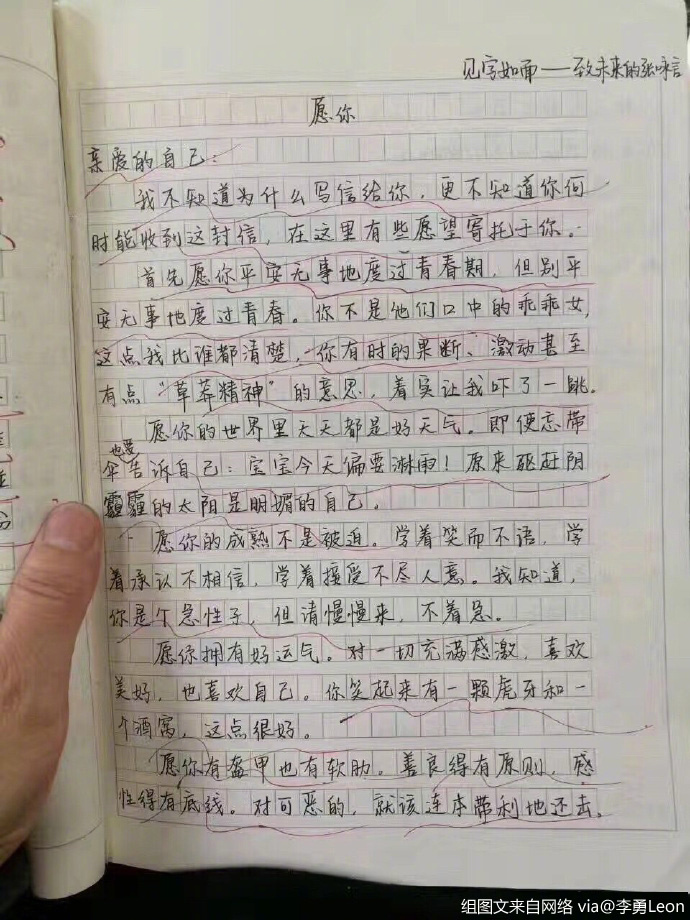 见字如面——致未来的张咏言
愿你
亲爱的自己：
我不知道为什么写信给你，更不知道你何
时能收到这封信，在这里有些愿望寄托于你。
首先愿你平安无事地度过青春期，但别平
安无事地度过青春。你不是他们口中的乖乖女，
这点我比谁都清楚，你有时的果断、激动甚至
有点“草莽精神”的意思，着实让我吓了一跳。
愿你的世界里天天都是好天气。即便忘带
也要
伞告诉自己：宝宝今天偏要淋雨！原来驱赶阴
霾的太阳是明媚的自己。
愿你的成熟不是被迫。学着笑而不语，学
着承认不相信，学着接受不尽人意。我知道，
你是个急性子，但请慢慢来，不着急。
愿你拥有好运气。对一切充满感激，喜欢
美好，也喜欢自己。你笑起来有一颗虎牙和一
个酒窝，这点很好。
愿你有盔甲也有软肋。善良得有原则，感
性得有底线。对可恶的，就该连本带利地还击。
组图文来自网络 via@李勇Leon